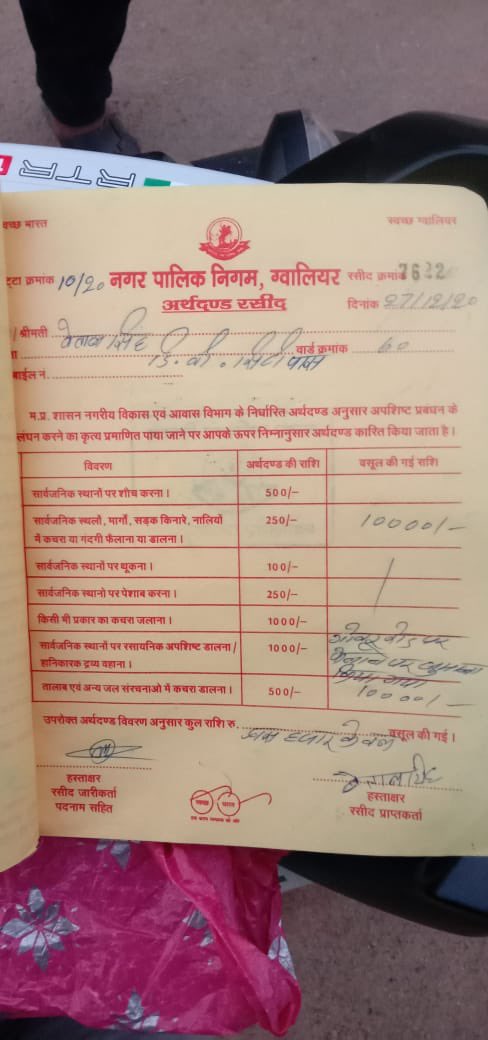 स्वच्छ भारत
स्वच्छ ग्वालियर
ट्टा क्रमांक 10/20 नगर पालिक निगम, ग्वालियर रसीद क्रमांक 7622
अर्थदण्ड रसीद
दिनांक 27/12/20
श्रीमती बेताल सिंह
डि. बी. सिटी पास वार्ड क्रमांक 60
बाईल नं.
म.प्र. शासन नगरीय विकास एवं आवास विभाग के निर्धारित अर्थदण्ड अनुसार अपशिष्ट प्रबधन के
लंघन करने का कृत्य प्रमाणित पाया जाने पर आपके ऊपर निम्नानुसार अर्थदण्ड कारित किया जाता है।
विवरण अर्थदण्ड की राशि वसूल की गई राशि
सार्वजनिक स्थानों पर शौच करना। 500/-
सार्वजनिक स्थलों, मार्गो, सड़क किनारे, नालियों 250/- 10000/-
में कचरा या गंदगी फैंलाना या डालना।
सार्वजनिक स्थानों पर थूकना। 100/-
सार्वजनिक स्थानो पर पेशाब करना। 250/-
किसी भी प्रकार का कचरा जलाना। 1000/-
सार्वजनिक स्थानों पर रसायनिक अपशिष्ट डालना/ 1000/- गोबर रोड पर
हानिकारक द्रव्य वहाना। फैलाने पर जुर्माना
किया गया
तालाब एवं अन्य जल संरचनाओ में कचरा डालना। 500/- 10000/-
उपरोक्त अर्थदण्ड विवरण अनुसार कुल राशि रु. दस हजार केवल वसूल की गई।
बेताल सिंह
हस्ताक्षर
रसीद जारीकर्ता
पदनाम सहित
स्वच्छ भारत
एक कदम स्वच्छता की ओर
हस्ताक्षर
रसीद प्राप्तकर्ता